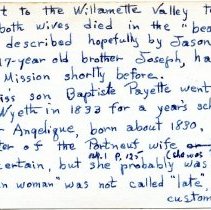 t to the Willamette Valley t
both wives died in the "bea
described hopefully by Jason
17-year old brother Joseph, ha
Mission shortly before.
iss son Baptiste Payette went
Wyeth in 1833 for a year's sc
r Angelique, born about 1830,
ter of the Portneuf wife
Vol.1 P.125 (She was
ertain, but she probably was
n woman" was not called "late",
custom